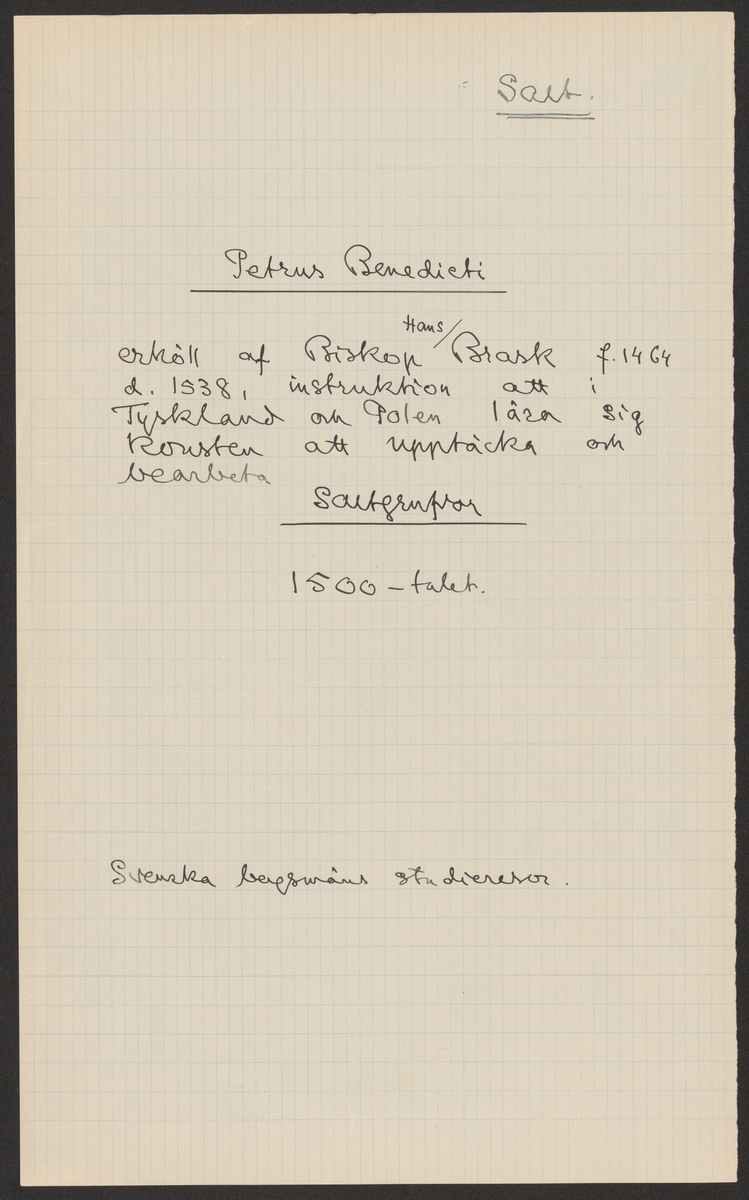 Salt.
Petrus Benedicti
erhöll af Biskop Hans Brask f. 1464
d. 1538, instruktion att i
Tyskland och Polen lära sig
konsten att upptäcka och
bearbeta
Saltgrufvor
1500-talet.
Svenska bergsmäns studieresor.